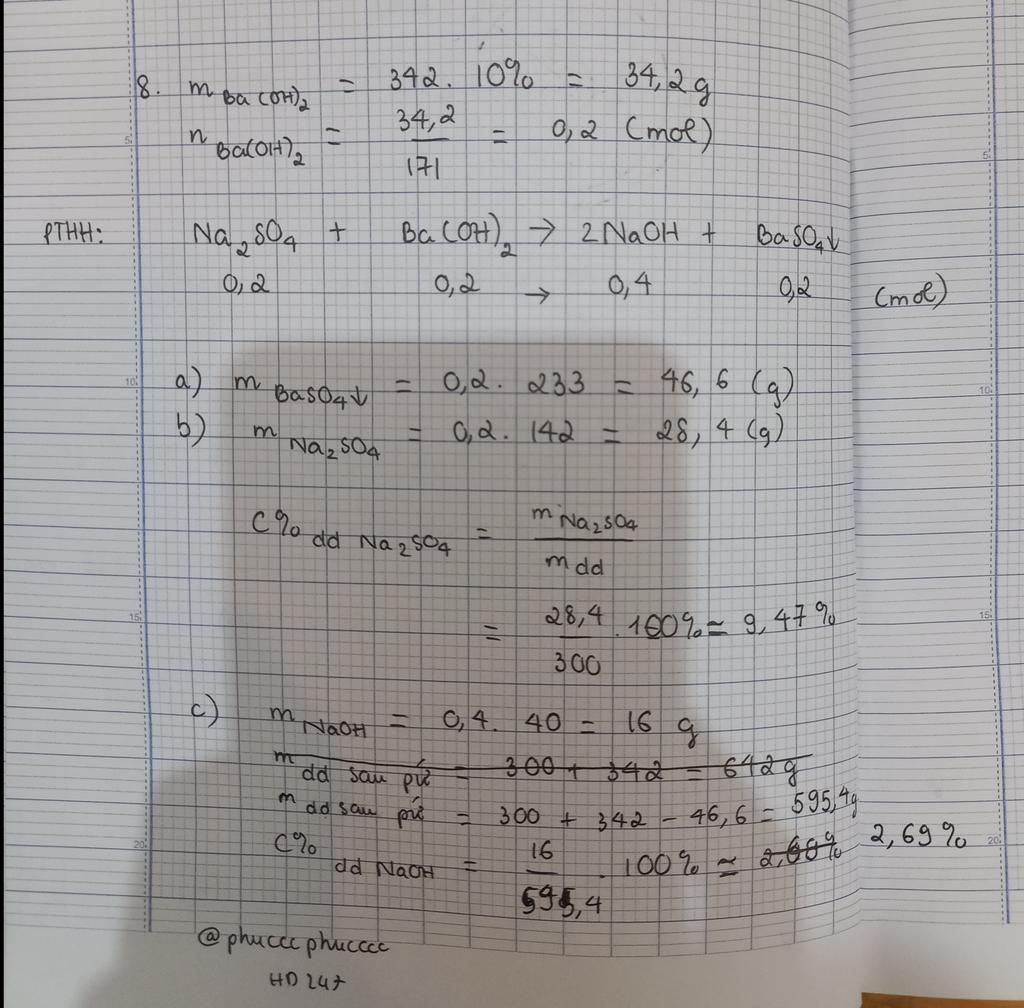 8. m Ba(OH)₂ = 342. 10% = 34,2g
n Ba(OH)₂ = 34,2/171 = 0,2 (mol)
PTHH: Na₂SO₄ + Ba(OH)₂ → 2NaOH + BaSO₄↓
0,2 0,2 → 0,4 0,2 (mol)
a) m BaSO₄↓ = 0,2. 233 = 46,6 (g)
b) m Na₂SO₄ = 0,2. 142 = 28,4 (g)
C% dd Na₂SO₄ = m Na₂SO₄/m dd
= 28,4/300 . 100% ≃ 9,47%
c) m NaOH = 0,4. 40 = 16 g
m dd sau pứ = 300 + 342 = 642g
m dd sau pứ = 300 + 342 - 46,6 = 595,4g
C% dd NaOH = 16/595,4 . 100% ≃ 2,69%
@phucccphucccc
HD247